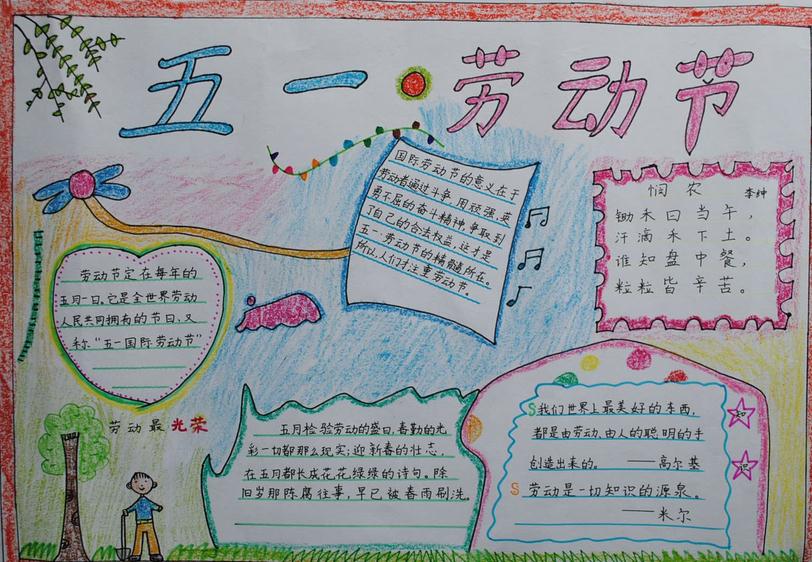 五一劳动节
国际劳动节的意义在于
劳动者通过斗争,用顽强、英
勇不屈的奋斗精神,争取到
了自己的合法权益,这才是
五一劳动节的精髓所在。
所以人们才注重劳动节。
悯农 李绅
锄禾日当午,
汗滴禾下土。
谁知盘中餐,
粒粒皆辛苦。
劳动节定在每年的
五月一日,它是全世界劳动
人民共同拥有的节日,又
称“五一国际劳动节”
劳动最光荣
五月检验劳动的盛日,春勤的光
彩一切都那么现实;迎新春的壮志,
在五月都长成花花绿绿的诗句。除
旧岁那陈腐往事,早已被春雨刷洗。
我们世界上最美好的东西,
都是由劳动、由人的聪明的手
创造出来的。——高尔基
劳动是一切知识的源泉。
——米尔